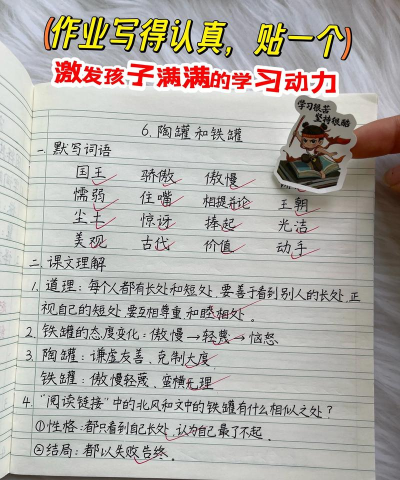 (作业写得认真，贴一个)
激发孩子满满的学习动力
学习很苦
坚持很酷
6.陶罐和铁罐
一.默写词语
国王 骄傲 傲慢
懦弱 住嘴 相提并论 王朝
尘土 惊讶 捧起 光洁
美观 古代 价值 动手
二.课文理解
1.道理：每个人都有长处和短处，要善于看到别人的长处，正
视自己的短处，要互相尊重，和睦相处。
2.铁罐的态度变化：傲慢→轻蔑→恼怒
3.陶罐：谦虚友善、克制大度
铁罐：傲慢轻蔑、蛮横无理
4."阅读链接"中的北风和文中的铁罐有什么相似之处？
①性格：都只看到自己长处，认为自己最了不起。
②结局：都以失败告终。